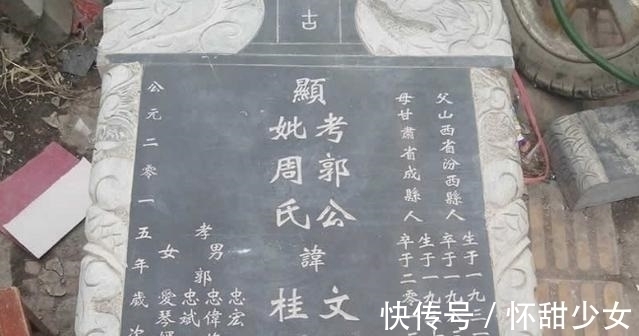 古
父山西省汾西縣人
生于一九三
卒于一九
母甘肅省成縣人
生于一九
卒于二零
顯
考郭公諱文
妣周氏
桂
孝男郭
忠宏
忠偉
忠斌
女
愛琴
公元二零一五年歲次
快传号 / 怀甜少女